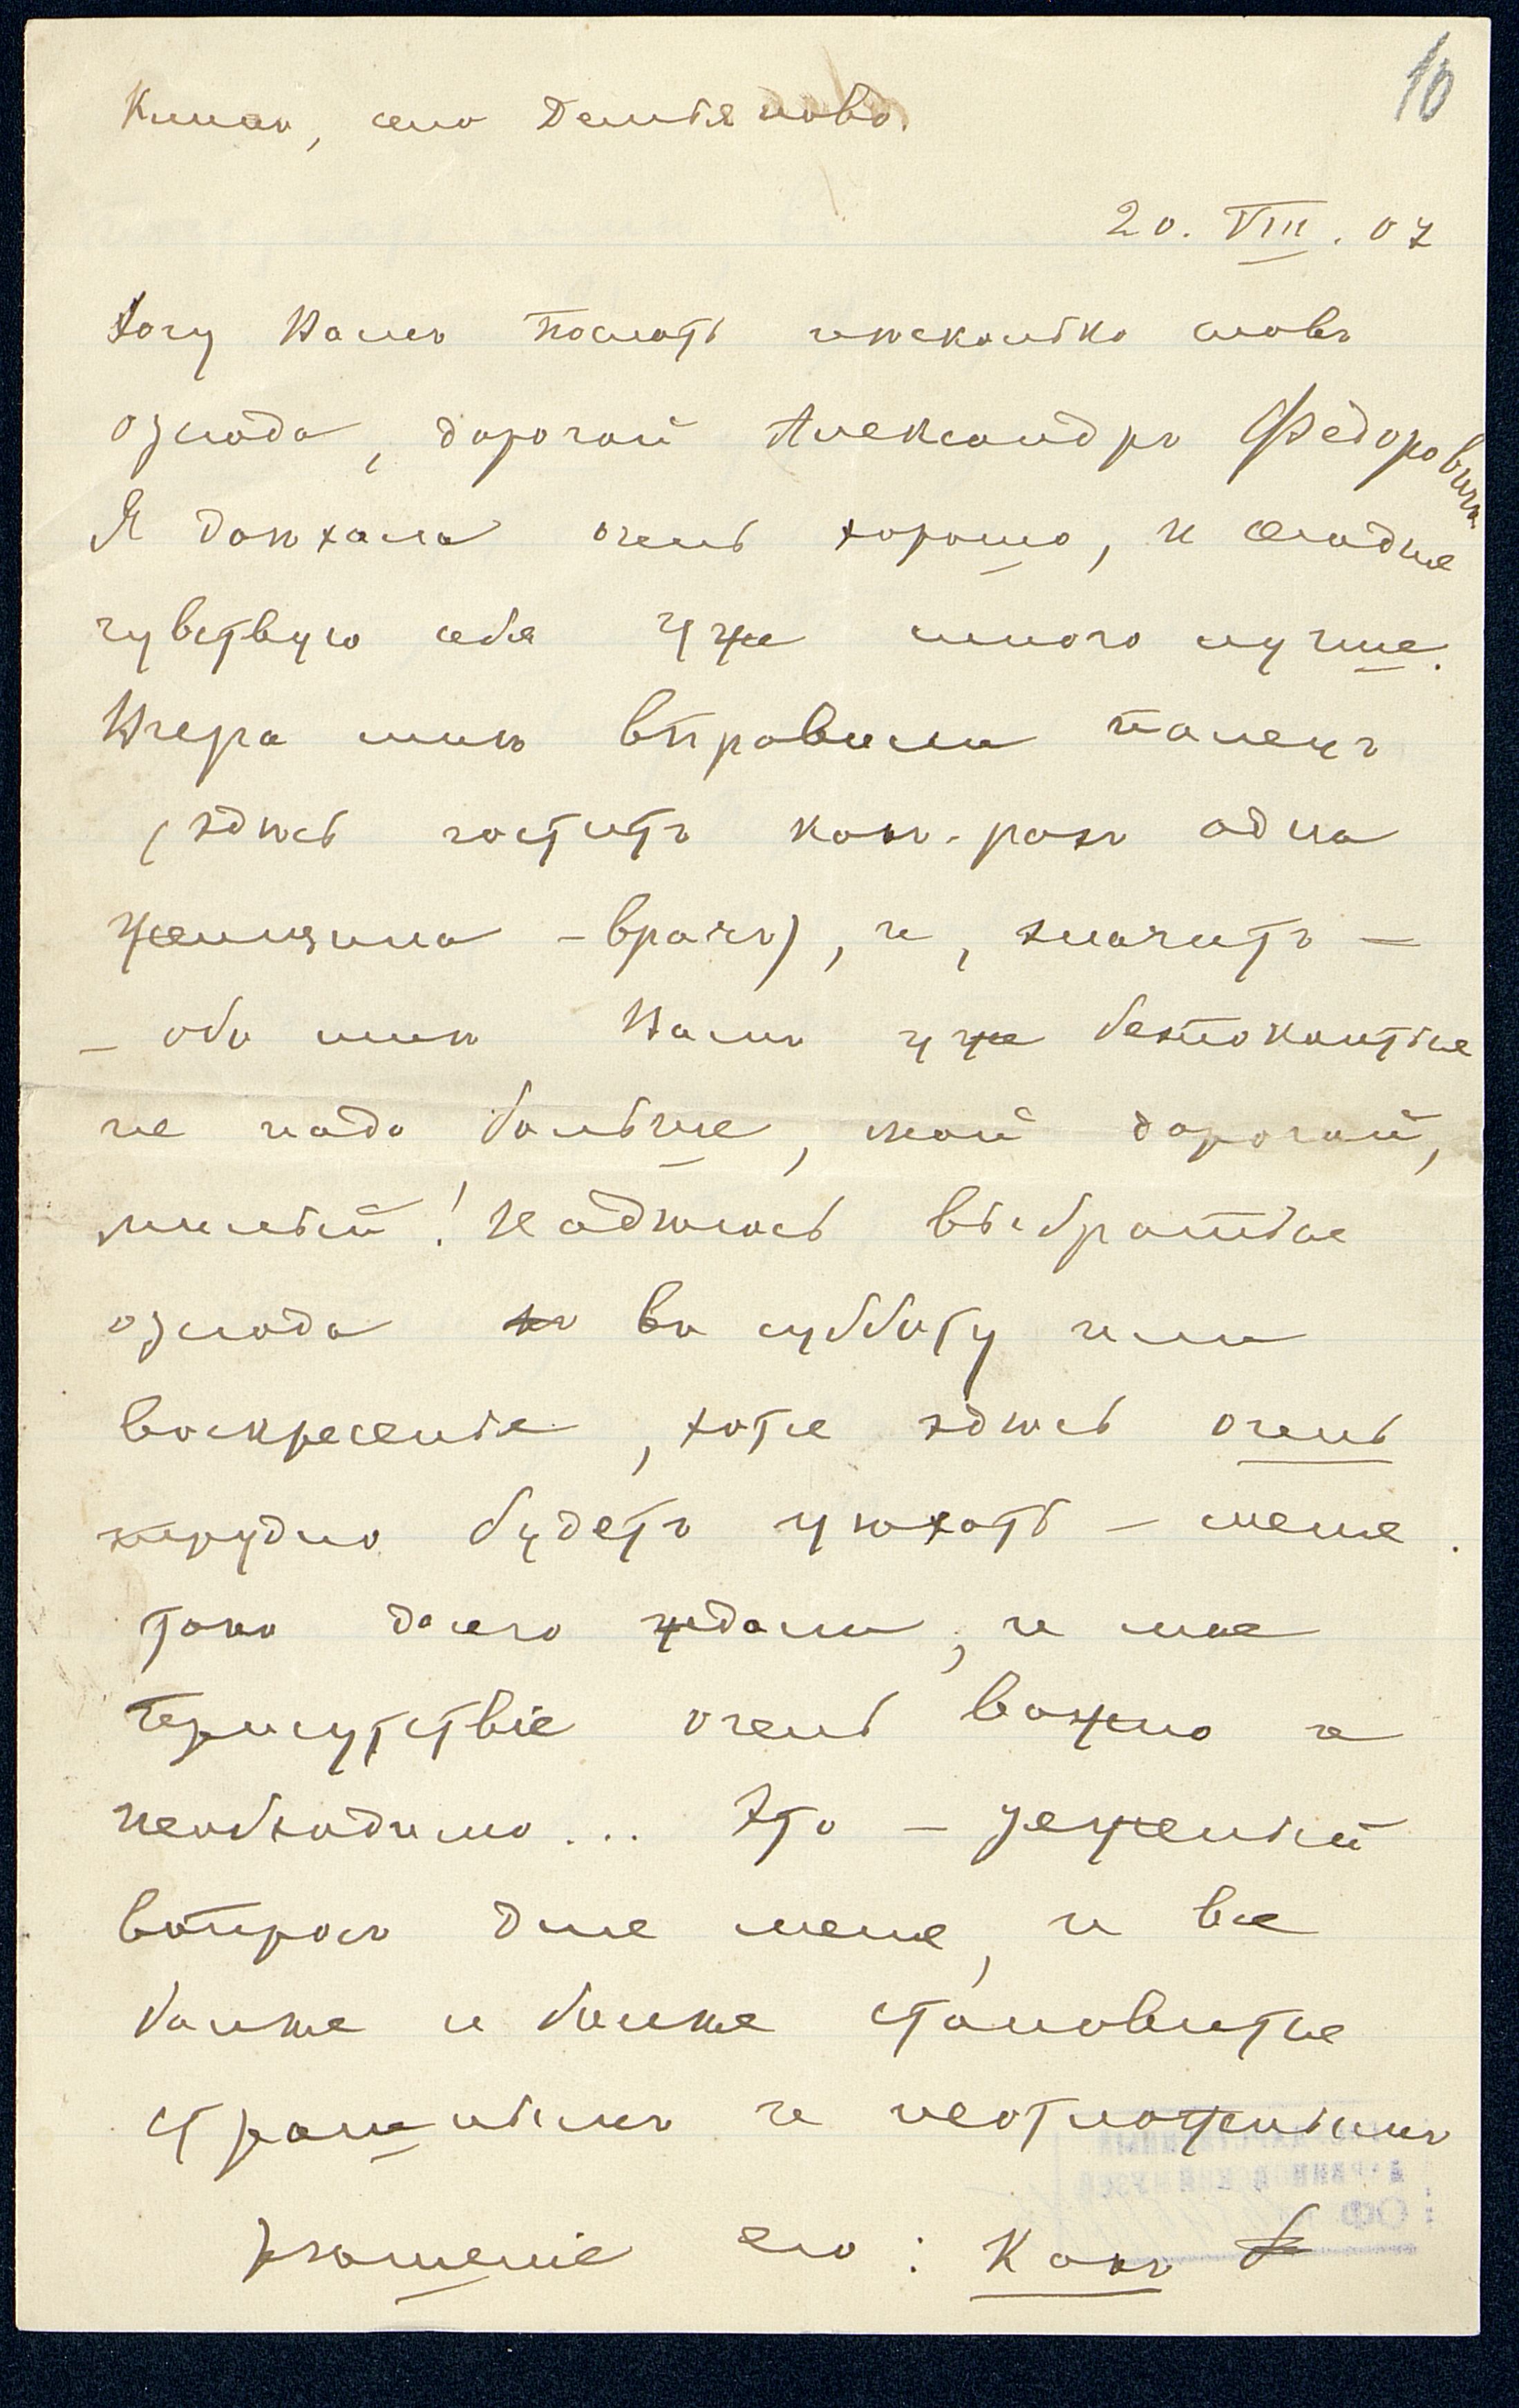 10
Клинъ, село Демьяново.
20. VIII. 07
Хочу Вамъ послать нѣсколько словъ
отсюда, дорогой Александръ Федоровичъ.
Я доѣхала очень хорошо, и сегодня
чувствую себя уже много лучше.
Вчера мнѣ вправили палецъ
(здѣсь гоститъ какъ-разъ одна
женщина-врачъ), и, значитъ –
– обо мнѣ Вамъ уже безпокоиться
не надо больше, мой дорогой,
милый! Надѣюсь выбраться
отсюда въ субботу или
воскресенье, хотя здѣсь очень
трудно будетъ уѣхать – меня
такъ долго ждали, и мое
присутствіе очень важно и
необходимо... Это – тяжелый
вопросъ для меня, и все
ближе и ближе становится
страшнымъ и неотложнымъ
рѣшеніе его: Какъ